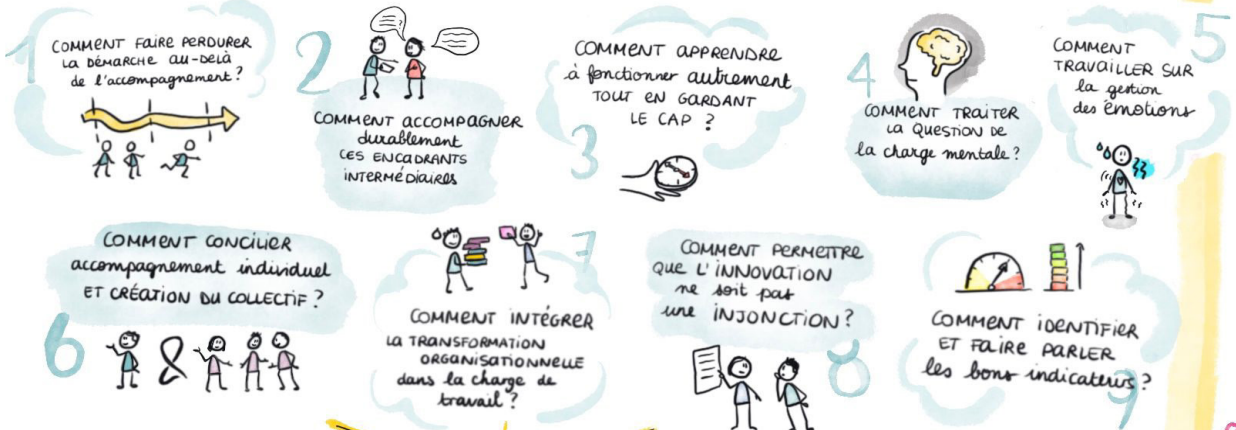 1
COMMENT FAIRE PERDURER
LA DÉMARCHE AU-DELÀ
de l'accompagnement?
2
COMMENT ACCOMPAGNER
durablement
CES ENCADRANTS
INTERMÉDIAIRES
3
COMMENT APPRENDRE
à fonctionner autrement
TOUT EN GARDANT
LE CAP ?
4
COMMENT TRAITER
LA QUESTION DE
la charge mentale?
5
COMMENT
TRAVAILLER SUR
la gestion
des émotions
6
COMMENT CONCILIER
accompagnement individuel
ET CRÉATION DU COLLECTIF ?
&
7
COMMENT INTÉGRER
LA TRANSFORMATION
ORGANISATIONNELLE
dans la charge de
travail ?
8
COMMENT PERMETTRE
QUE L'INNOVATION
ne soit pas
une INJONCTION?
9
COMMENT IDENTIFIER
ET FAIRE PARLER
les bons indicateurs ?